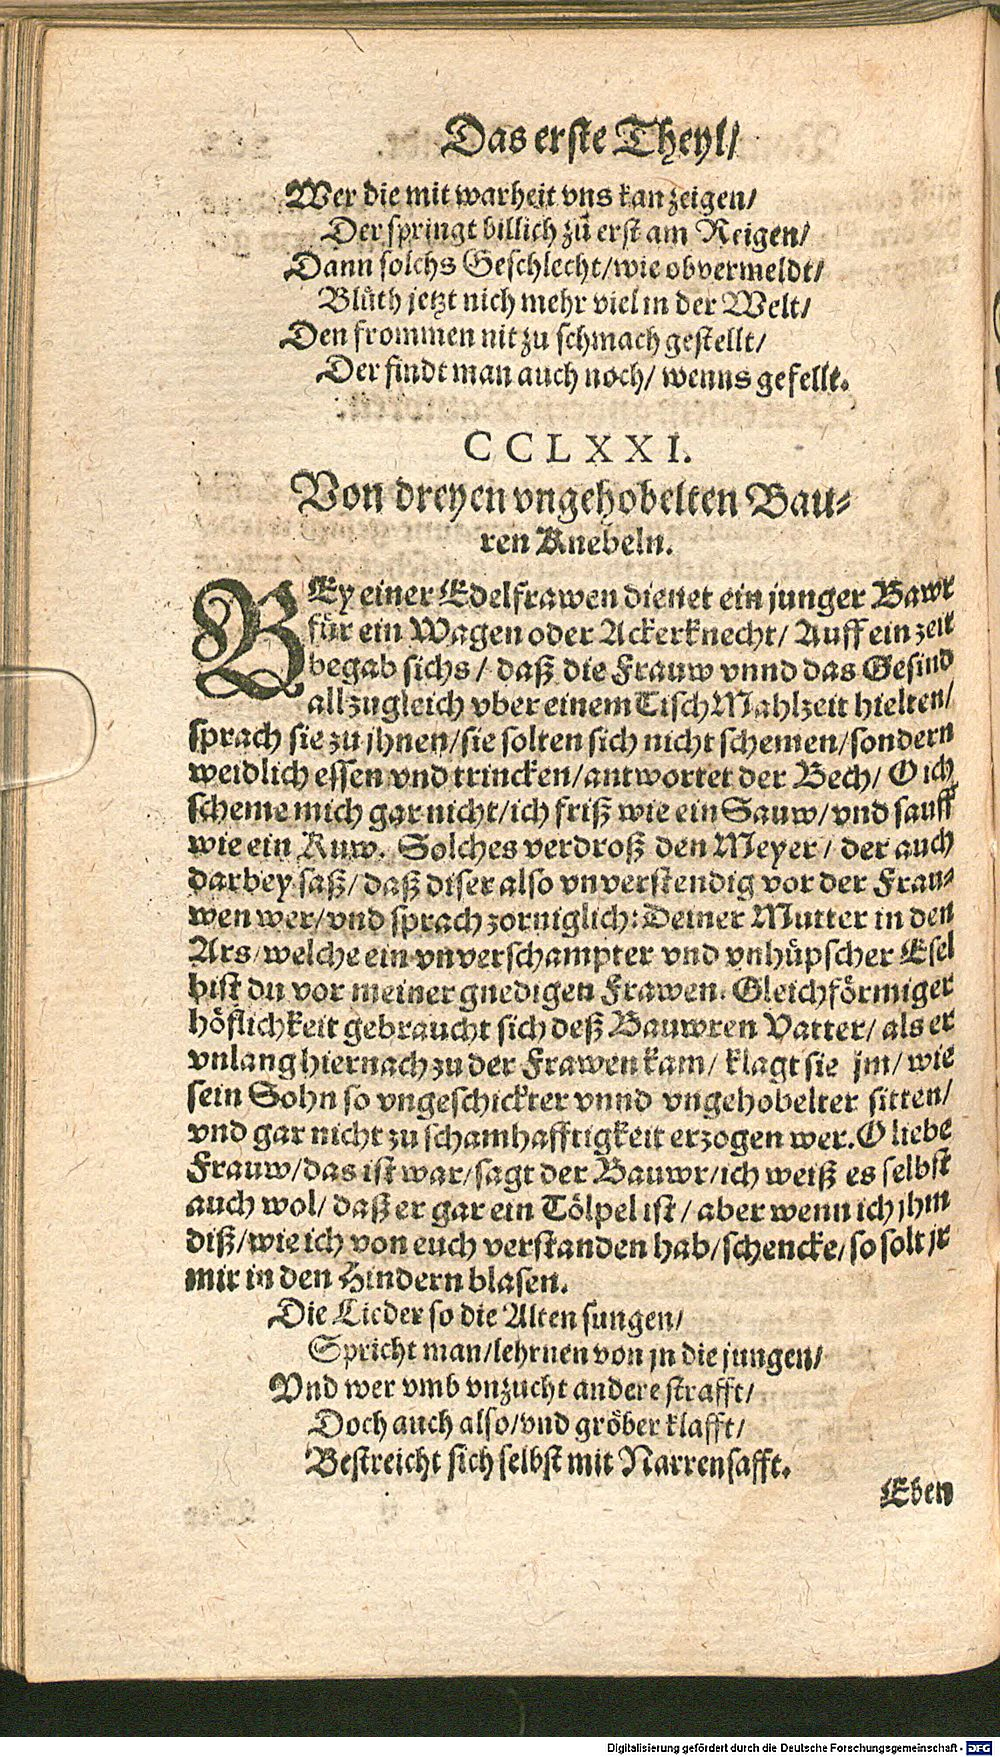 Das erste Theyl/
Wer die mit warheit vns kan zeigen/
Der springt billich zů erst am Reigen/
Dann solchs Geschlecht/wie obvermeldt/
Blüth jetzt nich mehr viel in der Welt/
Den frommen nit zu schmach gestellt/
Der findt man auch noch/ wenns gefellt.
CCLXXI.
Von dreyen vngehobelten Bau-
ren Knebeln.
BEy einer Edelfrawen dienet ein junger Bawr
für ein Wagen oder Ackerknecht/ Auff ein zeit
begab sichs/ daß die Frauw vnnd das Gesind
allzugleich vber einem Tisch Mahlzeit hielten/
sprach sie zu jhnen/sie solten sich nicht schemen/sondern
weidlich essen vnd trincken/antwortet der Bech/ O ich
scheme mich gar nicht/ich friß wie ein Sauw/vnd sauff
wie ein Kuw. Solches verdroß den Meyer/ der auch
darbey saß/daß diser also vnverstendig vor der Frau-
wen wer/vnd sprach zorniglich: Deiner Mutter in den
Ars/welche ein vnverschampter vnd vnhüpscher Esel
bist du vor meiner gnedigen Frawen. Gleichförmiger
höflichkeit gebraucht sich deß Bauwren Vatter/ als er
vnlang hiernach zu der Frawen kam/ klagt sie jm/ wie
sein Sohn so vngeschickter vnnd vngehobelter sitten/
vnd gar nicht zu schamhafftigkeit erzogen wer. O liebe
Frauw/das ist war/sagt der Bauwr/ich weiß es selbst
auch wol/ daß er gar ein Tölpel ist/ aber wenn ich jhm
diß/wie ich von euch verstanden hab/schencke/so solt jr
mir in den Hindern blasen.
Die Lieder so die Alten sungen/
Spricht man/lehrnen von jn die jungen/
Vnd wer vmb vnzucht andere strafft/
Doch auch also/vnd gröber klafft/
Bestreicht sich selbst mit Narrensafft.
Eben
Digitalisierung gefördert durch die Deutsche Forschungsgemeinschaft - DFG